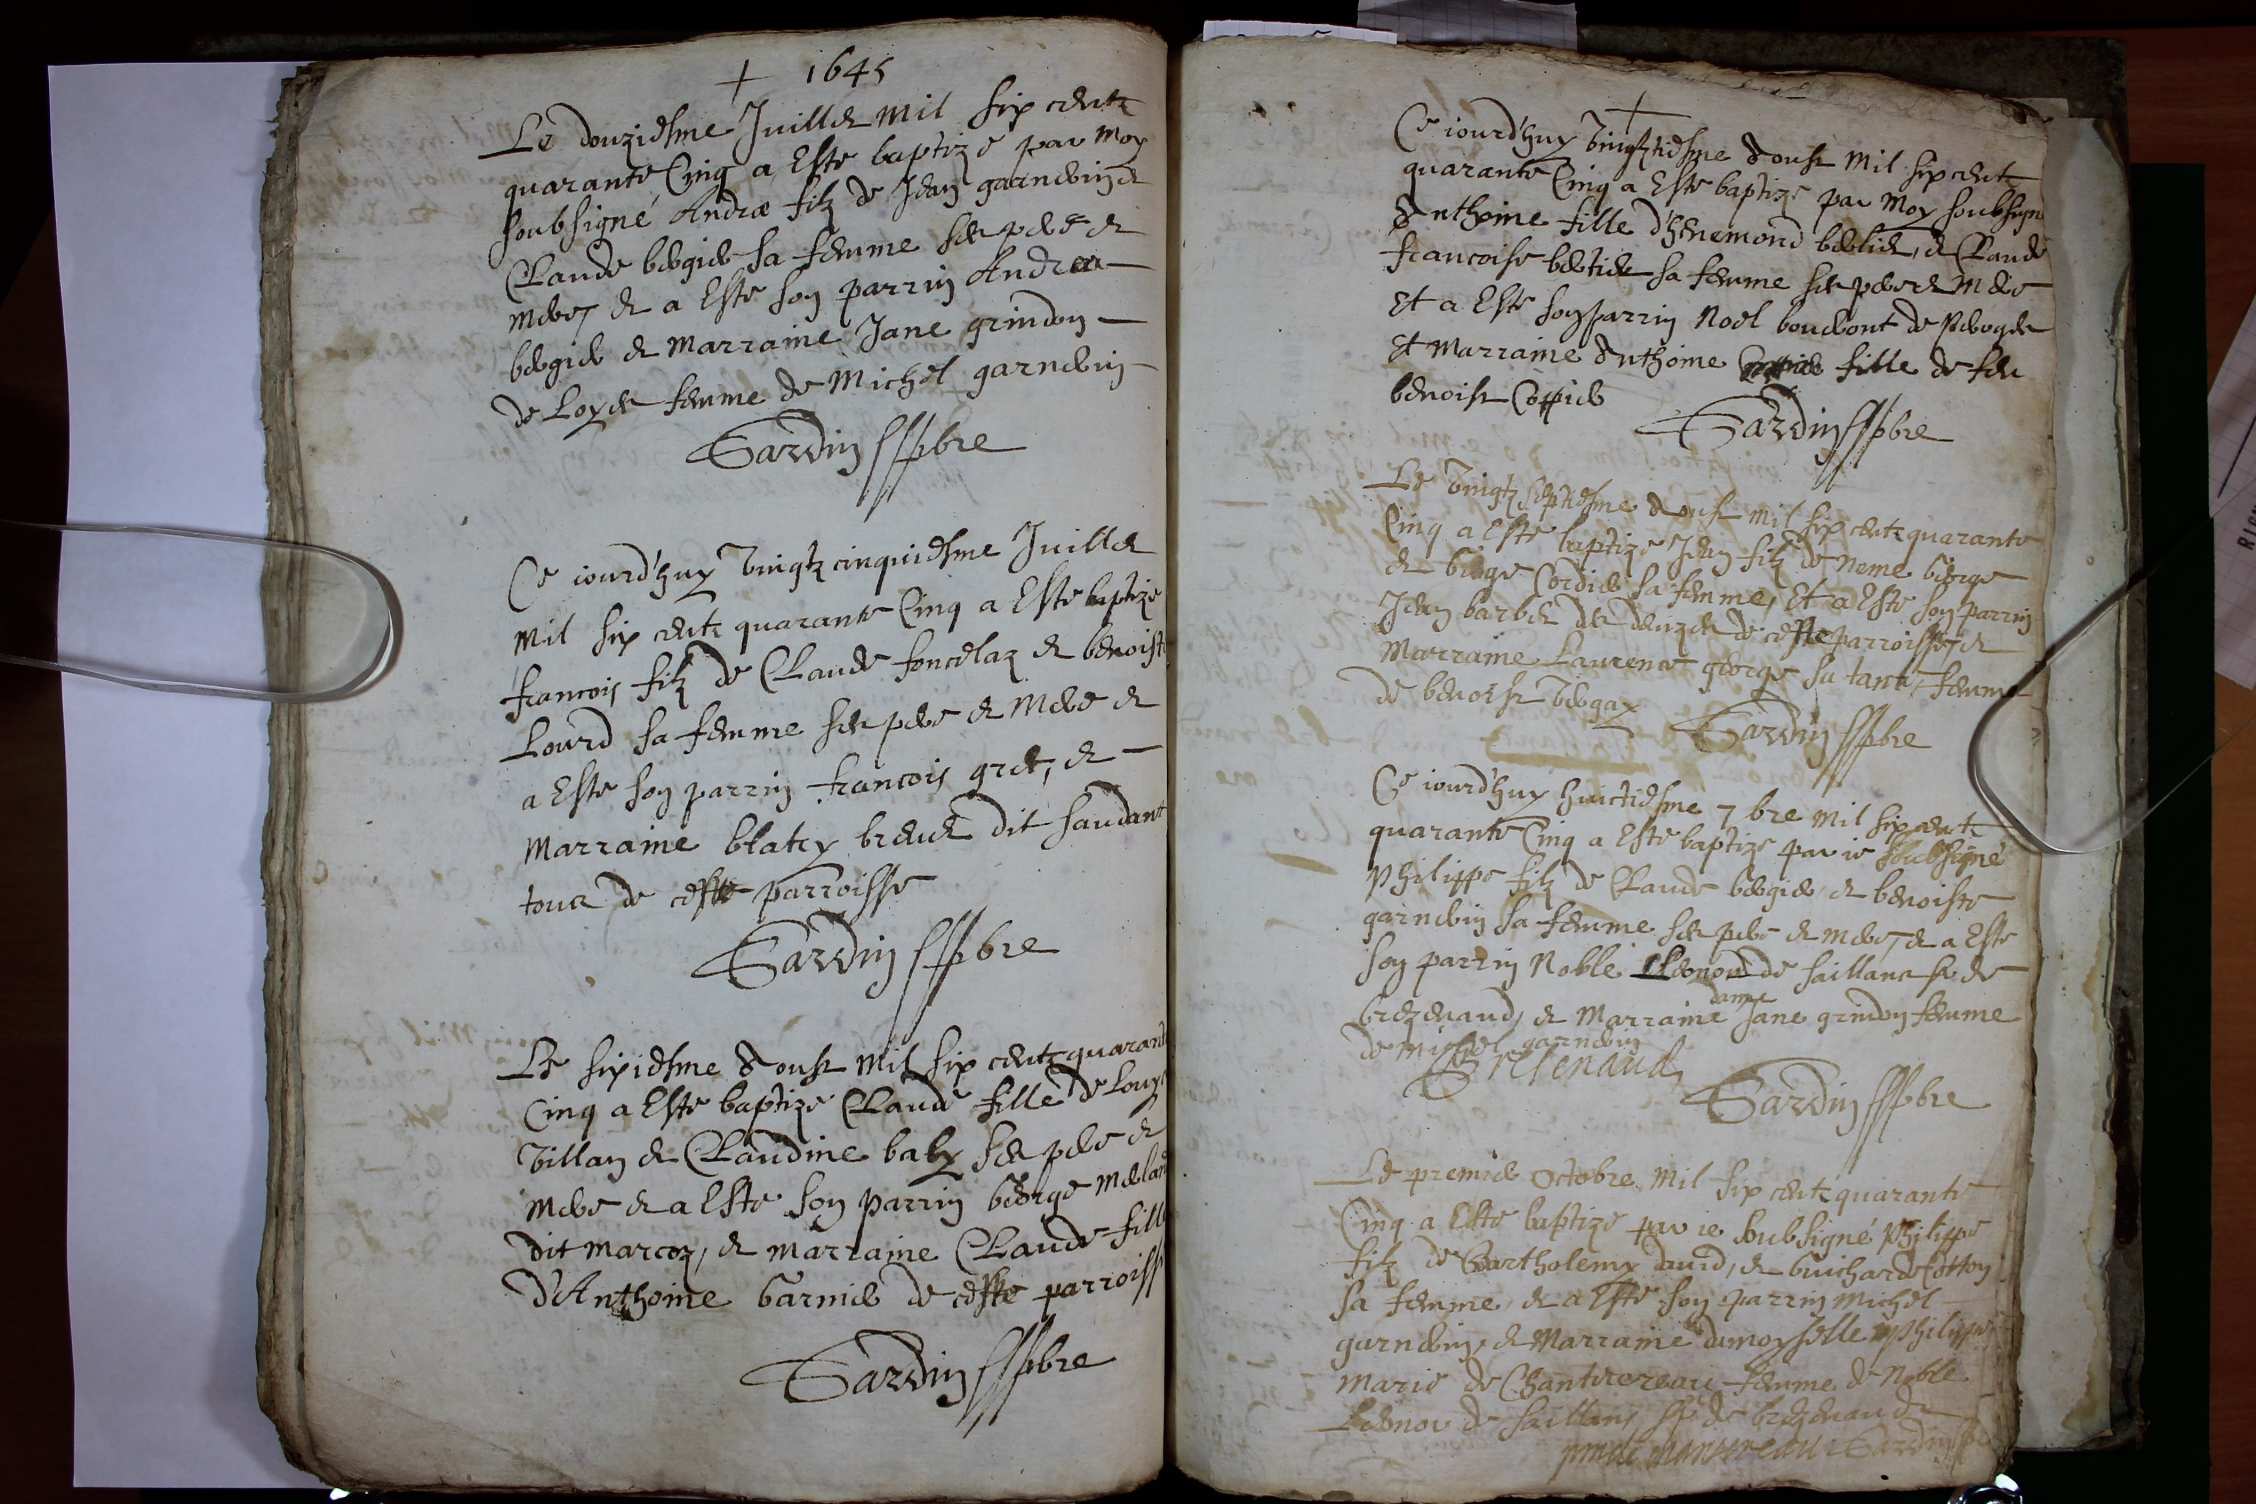 1645
Le douziesme Juillet mil six centz
quarante Cinq a Este baptizé par moy
soubsigné Andree filz de Jean garnerin et
Claude bergier sa femme ses pere et
mere, et a Este son parrin Andree
bergier et marraine Jane grindon
de Loyet femme de Michel garnerin
Sardin ptbre
Ce iourd'huy vingtz cinquiesme Juillet
mil six centz quarante Cinq a Este baptize
francois filz de Claude foncelaz et benoiste
Lourd sa femme ses pere et mere et
a Este son parrin francois gret, et
marraine blatry breuet dit saudant
touct de ceste parroisse
Sardin ptbre
Le sixiesme Aoust mil six centz quarante
Cinq a Este baptize Claude fille de Louys
Villan et Claudine baly ses pere et
mere et a Este son parrin George
dit marcoz, et marraine Claude fille
d'Anthoine Garnier de ceste parroisse
Sardin ptbre
Ce iourd'huy vingtztiesme Aoust mil six centz
quarante Cinq a Este baptize par moy soubsigne
Anthoine fille d'henemond berliet, et Claude
francoise bertier sa femme ses pere et mere
Et a Este son parrin Noel bouveront de
Et marraine Anthoine Cottier fille de feu
benoist Cottier
Sardin ptbre
Le vingtz septiesme Aoust mil six centz quarante
Cinq a Este baptize Jean filz de Neme George
et Cordier sa femme, Et a Este son parrin
Jean barbet de ceste parroisse, et
Marraine Laurence george sa tante, femme
de benoist vergay
Sardin ptbre
Ce iourd'huy huictiesme 7bre mil six centz
quarante Cinq a Este baptize par ie soubsigné
Philippe filz de Claude bergier et benoiste
garnerin sa femme ses pere et mere, et a Este
son parrin Noble Leonor de saillans sr de
brezenaud, et marraine dame Jane grindon femme
de michel garnerin
Bresenaud
Sardin ptbre
Le premier Octobre mil six centz quarante
Cinq a Este baptize par ie soubsigné Philippe
filz de Bartholemy david, et buicharde Cotton
sa femme, et a Este son parrin Michel
garnerin, et Marraine damoyselle Philippe
Marie de Chantereau femme de Noble
Leonor de saillans sr de brezenaud
Sardin